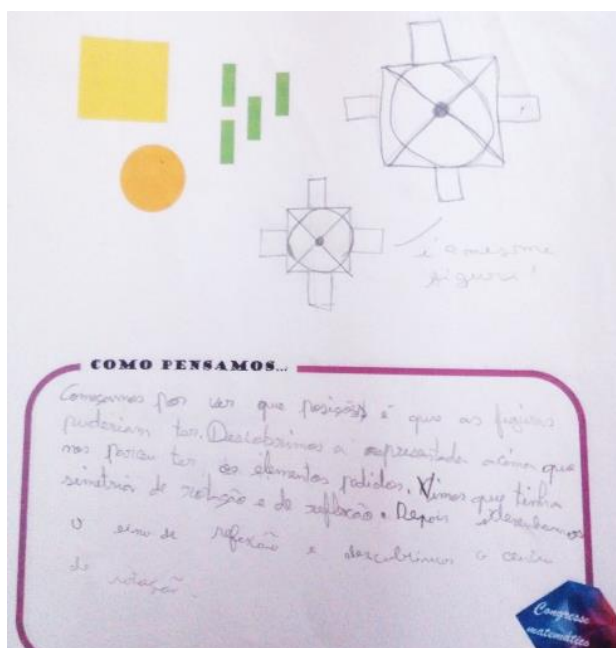 é a mesma
figura!
COMO PENSAMOS...
Começamos por ver que posições é que as figuras
puderiam ter. Descobrimos a representada acima que
nos pareceu ter os elementos pedidos. Vimos que tinha
simetria de rotação e de reflexão. Depois desenhamos
o eixo de reflexão e descobrimos o centro
de rotação.
Congresso
matemático